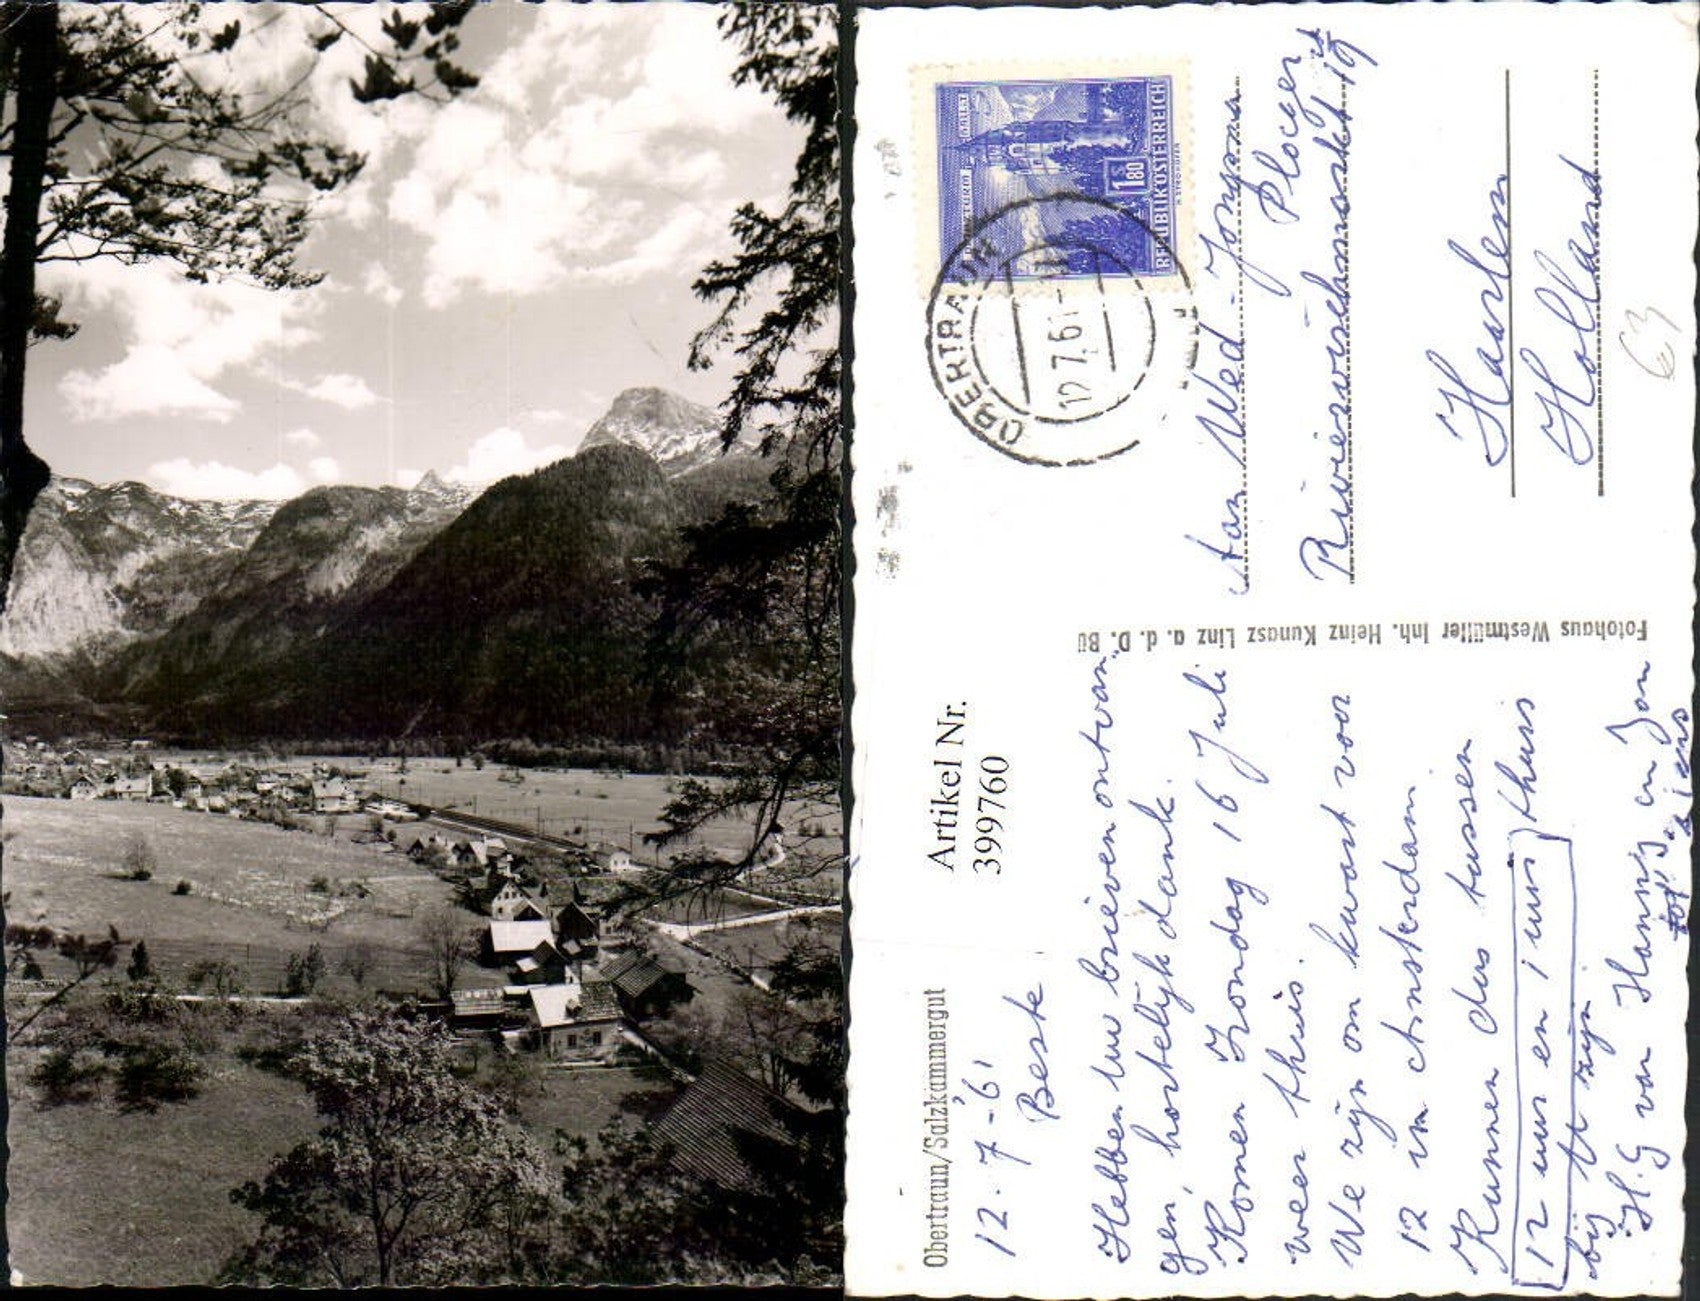 Obertraun/Salzkammergut
12-7-'61
Beste
Hebben uw brieven ontvan-
gen, hartelijk dank.
Komen Zondag 16 Juli
weer thuis.
We zijn om kwart voor
12 in Amsterdam.
Kunnen dus tussen
12 uur en 1 uur thuis
bij zijn
H. G van Hannij en Jan
Artikel Nr.
399760
Fotohaus Westmüller Inh. Heinz Kunasz Linz a. d. D. Bü
REPUBLIK ÖSTERREICH
S 1.80
OBERTRAUN
12.7.61
Aan Wed. Jongsma
Ploeger
Riviervischmarkt 19
Haarlem
Holland
63